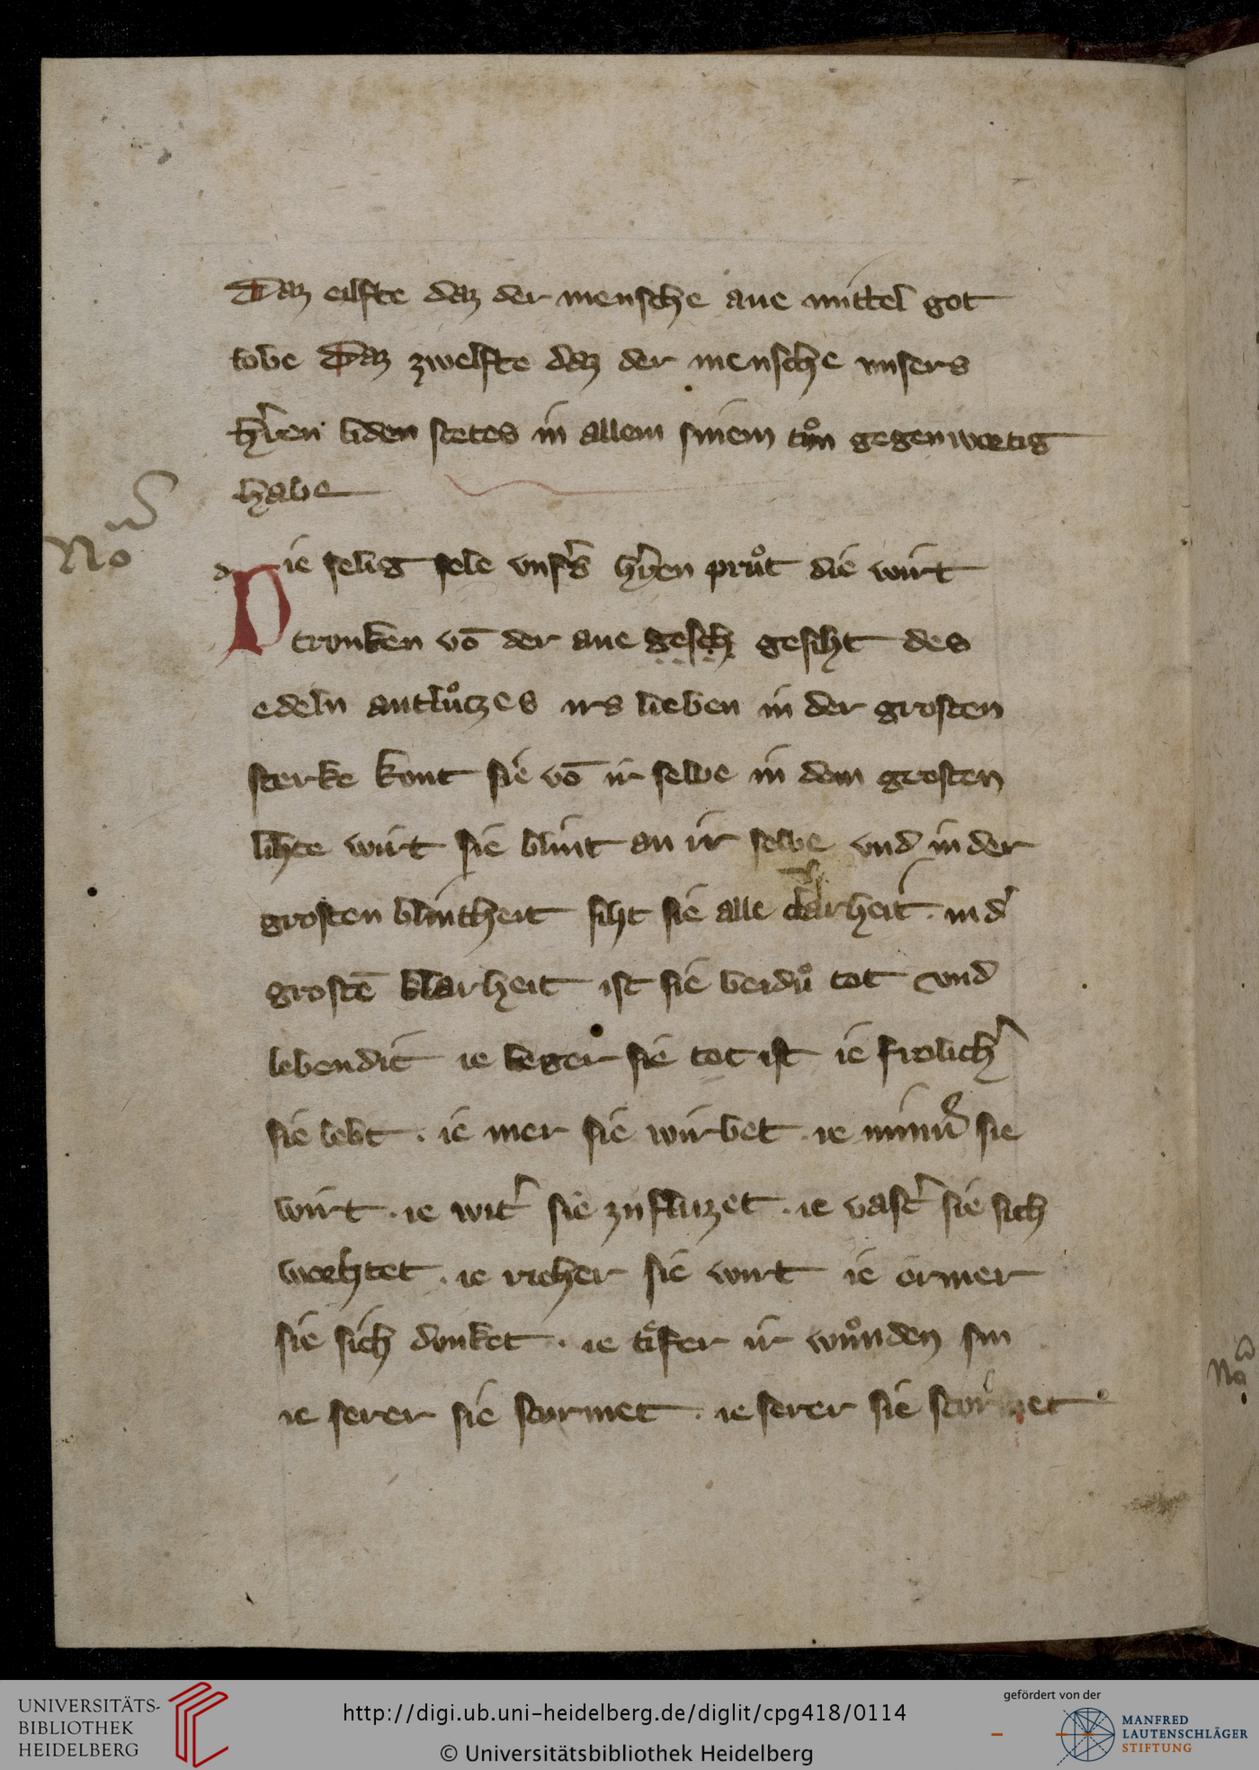 Daz eilfte daz der mensche ane mittel got
lobe Daz zwelfte daz der mensche unsers
h'ren liden stetes in allem sinem tuͦn gegenwertig
habe
No
Die selig sele vnſ's h'ren pruͦt die wirt
trvnken vō der ane gesch gesiht des
edeln antluͦtzes irs lieben in der grosten
sterke kvnt sie vō ir selbe in dem grosten
lihte wirt sie blint an ir selbe vnd in der
grosten blintheit siht sie alle clarheit · in d'
grostē klarheit ist sie beiduͦ tot vnd
lebendic ie lenger sie tot ist ie frolich'
sie lebt · ie mer sie wirbet · ie minn'd sie
wirt · ie wit' sie zufluzet · ie vast' sie sich
vorhtet · ie richer sie wirt ie ermer
sie sich dvnket · ie tifer ir wuͦnden sin
ie serer sie stvrmet · ie serer sie stvrmet
No
UNIVERSITÄTS-
BIBLIOTHEK
HEIDELBERG
http://digi.ub.uni-heidelberg.de/diglit/cpg418/0114
© Universitätsbibliothek Heidelberg
gefördert von der
MANFRED
LAUTENSCHLÄGER
STIFTUNG